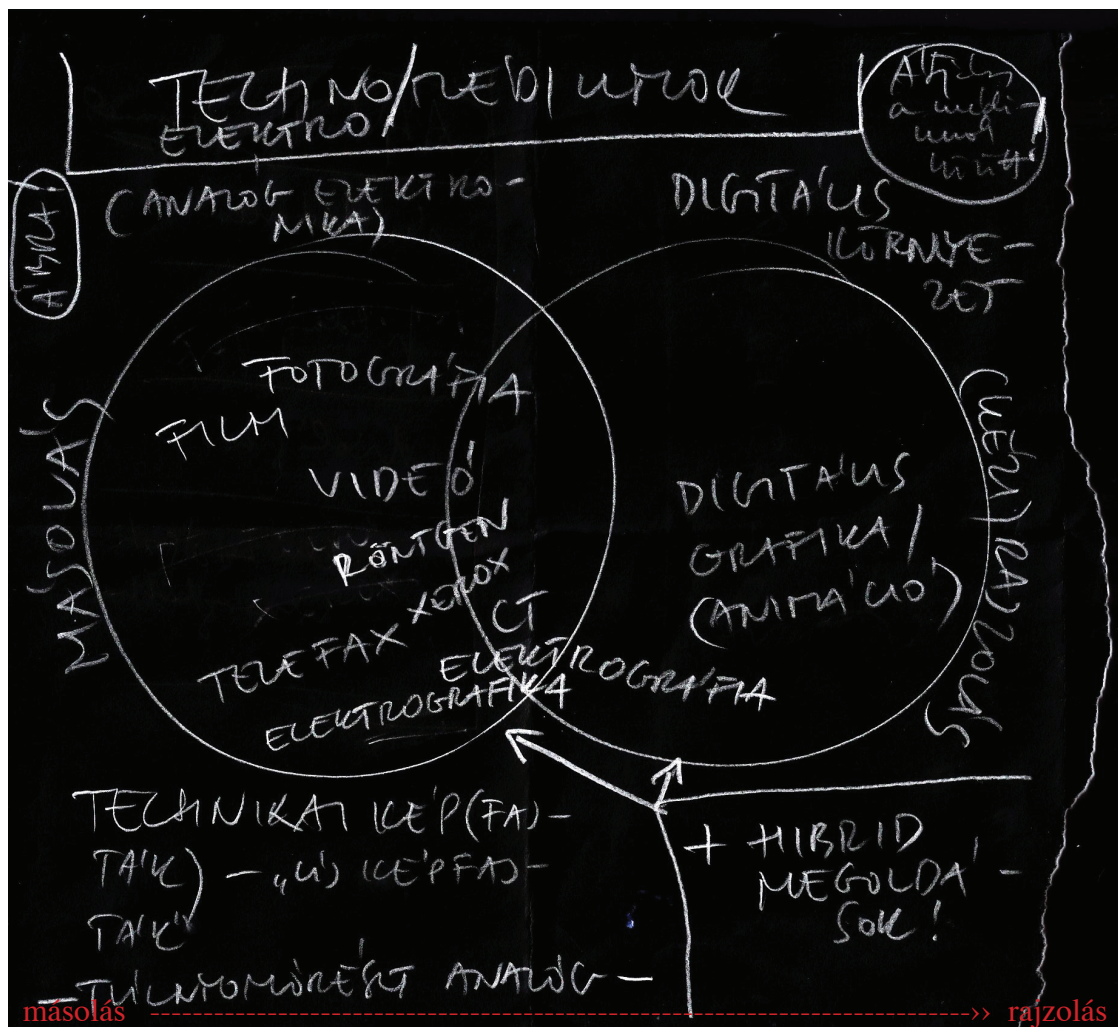 TECHNO/MÉDIUMOK
ELEKTRO
Átjárás
a médi-
umok
között!
ÁBRA!
(ANALÓG ELEKTRO-
NIKA)
DIGITÁLIS
KÖRNYE-
ZET
MÁSOLÁS
FOTOGRÁFIA
FILM
VIDEÓ
RÖNTGEN
XEROX
CT
TELEFAX
ELEKTROGRÁFIA
ELEKTROGRAFIKA
DIGITÁLIS
GRAFIKA/
(ANIMÁCIÓ)
(KÉZI) RAJZOLÁS
TECHNIKAI KÉP(FAJ-
TÁK) – „ÚJ KÉPFAJ-
TÁK”
– TÚLNYOMÓRÉSZT ANALÓG –
+ HIBRID
MEGOLDÁ-
SOK!
másolás ----------------------------------------------------------------------›› rajzolás